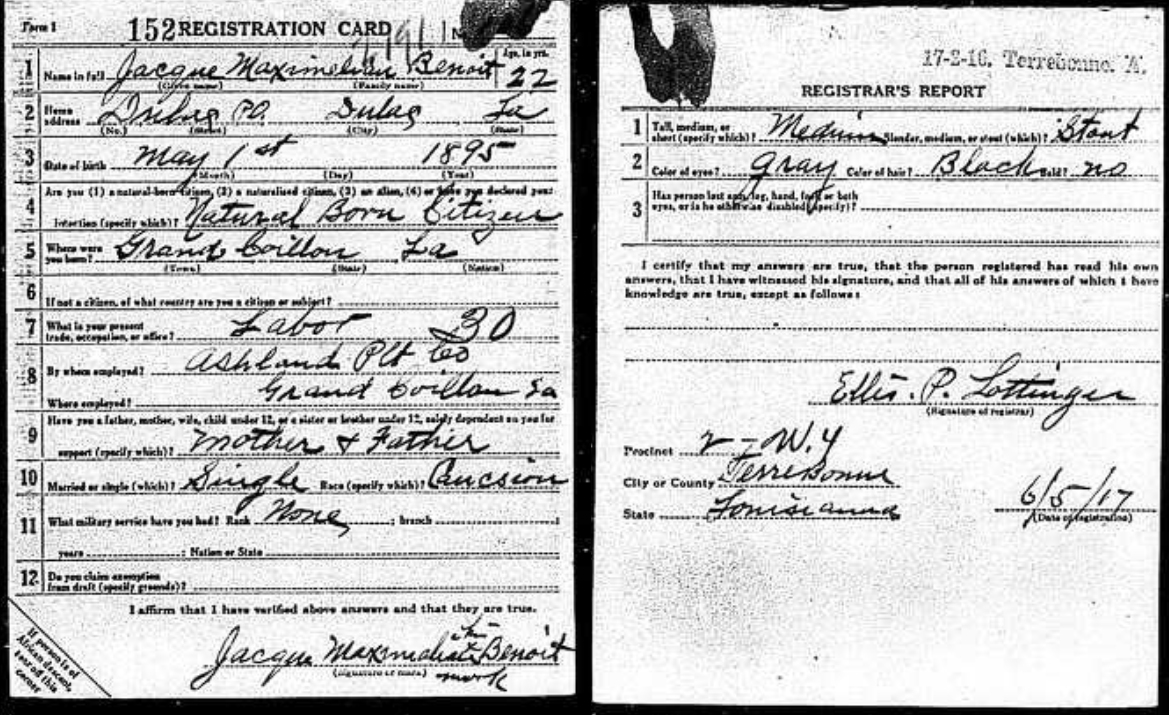 Form 1
152 REGISTRATION CARD
1 Name in full Jacque Maximelian Benoit Age, in yrs. 22
(Given name) (Family name)
2 Home address P.O. Dulac La
(No.) (Street) (City) (State)
3 Date of birth May 1st 1895
(Month) (Day) (Year)
Are you (1) a natural-born citizen, (2) a naturalized citizen, (3) an alien, (4) or have you declared your
4 intention (specify which)? Natural Born Citizen
5 Where were you born? Grand Coillou La
(Town) (State) (Nation)
6 If not a citizen, of what country are you a citizen or subject?
7 What is your present trade, occupation, or office? Labor 30
8 By whom employed? Ashland Plt Co
Where employed? Grand Coillou La
Have you a father, mother, wife, child under 12, or a sister or brother under 12, solely dependent on you for
9 support (specify which)? Mother & Father
10 Married or single (which)? Single Race (specify which)? Caucsion
11 What military service have you had? Rank None ; branch ;
years ; Nation or State
12 Do you claim exemption from draft (specify grounds)?
I affirm that I have verified above answers and that they are true.
Jacque Maximelian his x Benoit
(Signature or mark) mark
If person is of
African descent,
tear off this
corner
17-2-16. Terrebonne. A.
REGISTRAR'S REPORT
1 Tall, medium, or short (specify which)? Medium Slender, medium, or stout (which)? Stout
2 Color of eyes? gray Color of hair? Black Bald? no
3 Has person lost arm, leg, hand, foot, or both
eyes, or is he otherwise disabled (specify)?
I certify that my answers are true, that the person registered has read his own
answers, that I have witnessed his signature, and that all of his answers of which I have
knowledge are true, except as follows:
Ellis. P. Lottinger
(Signature of registrar)
Precinct 2 - W. 4
City or County Terrebonne
State Louisiana 6/5/17
(Date of registration)